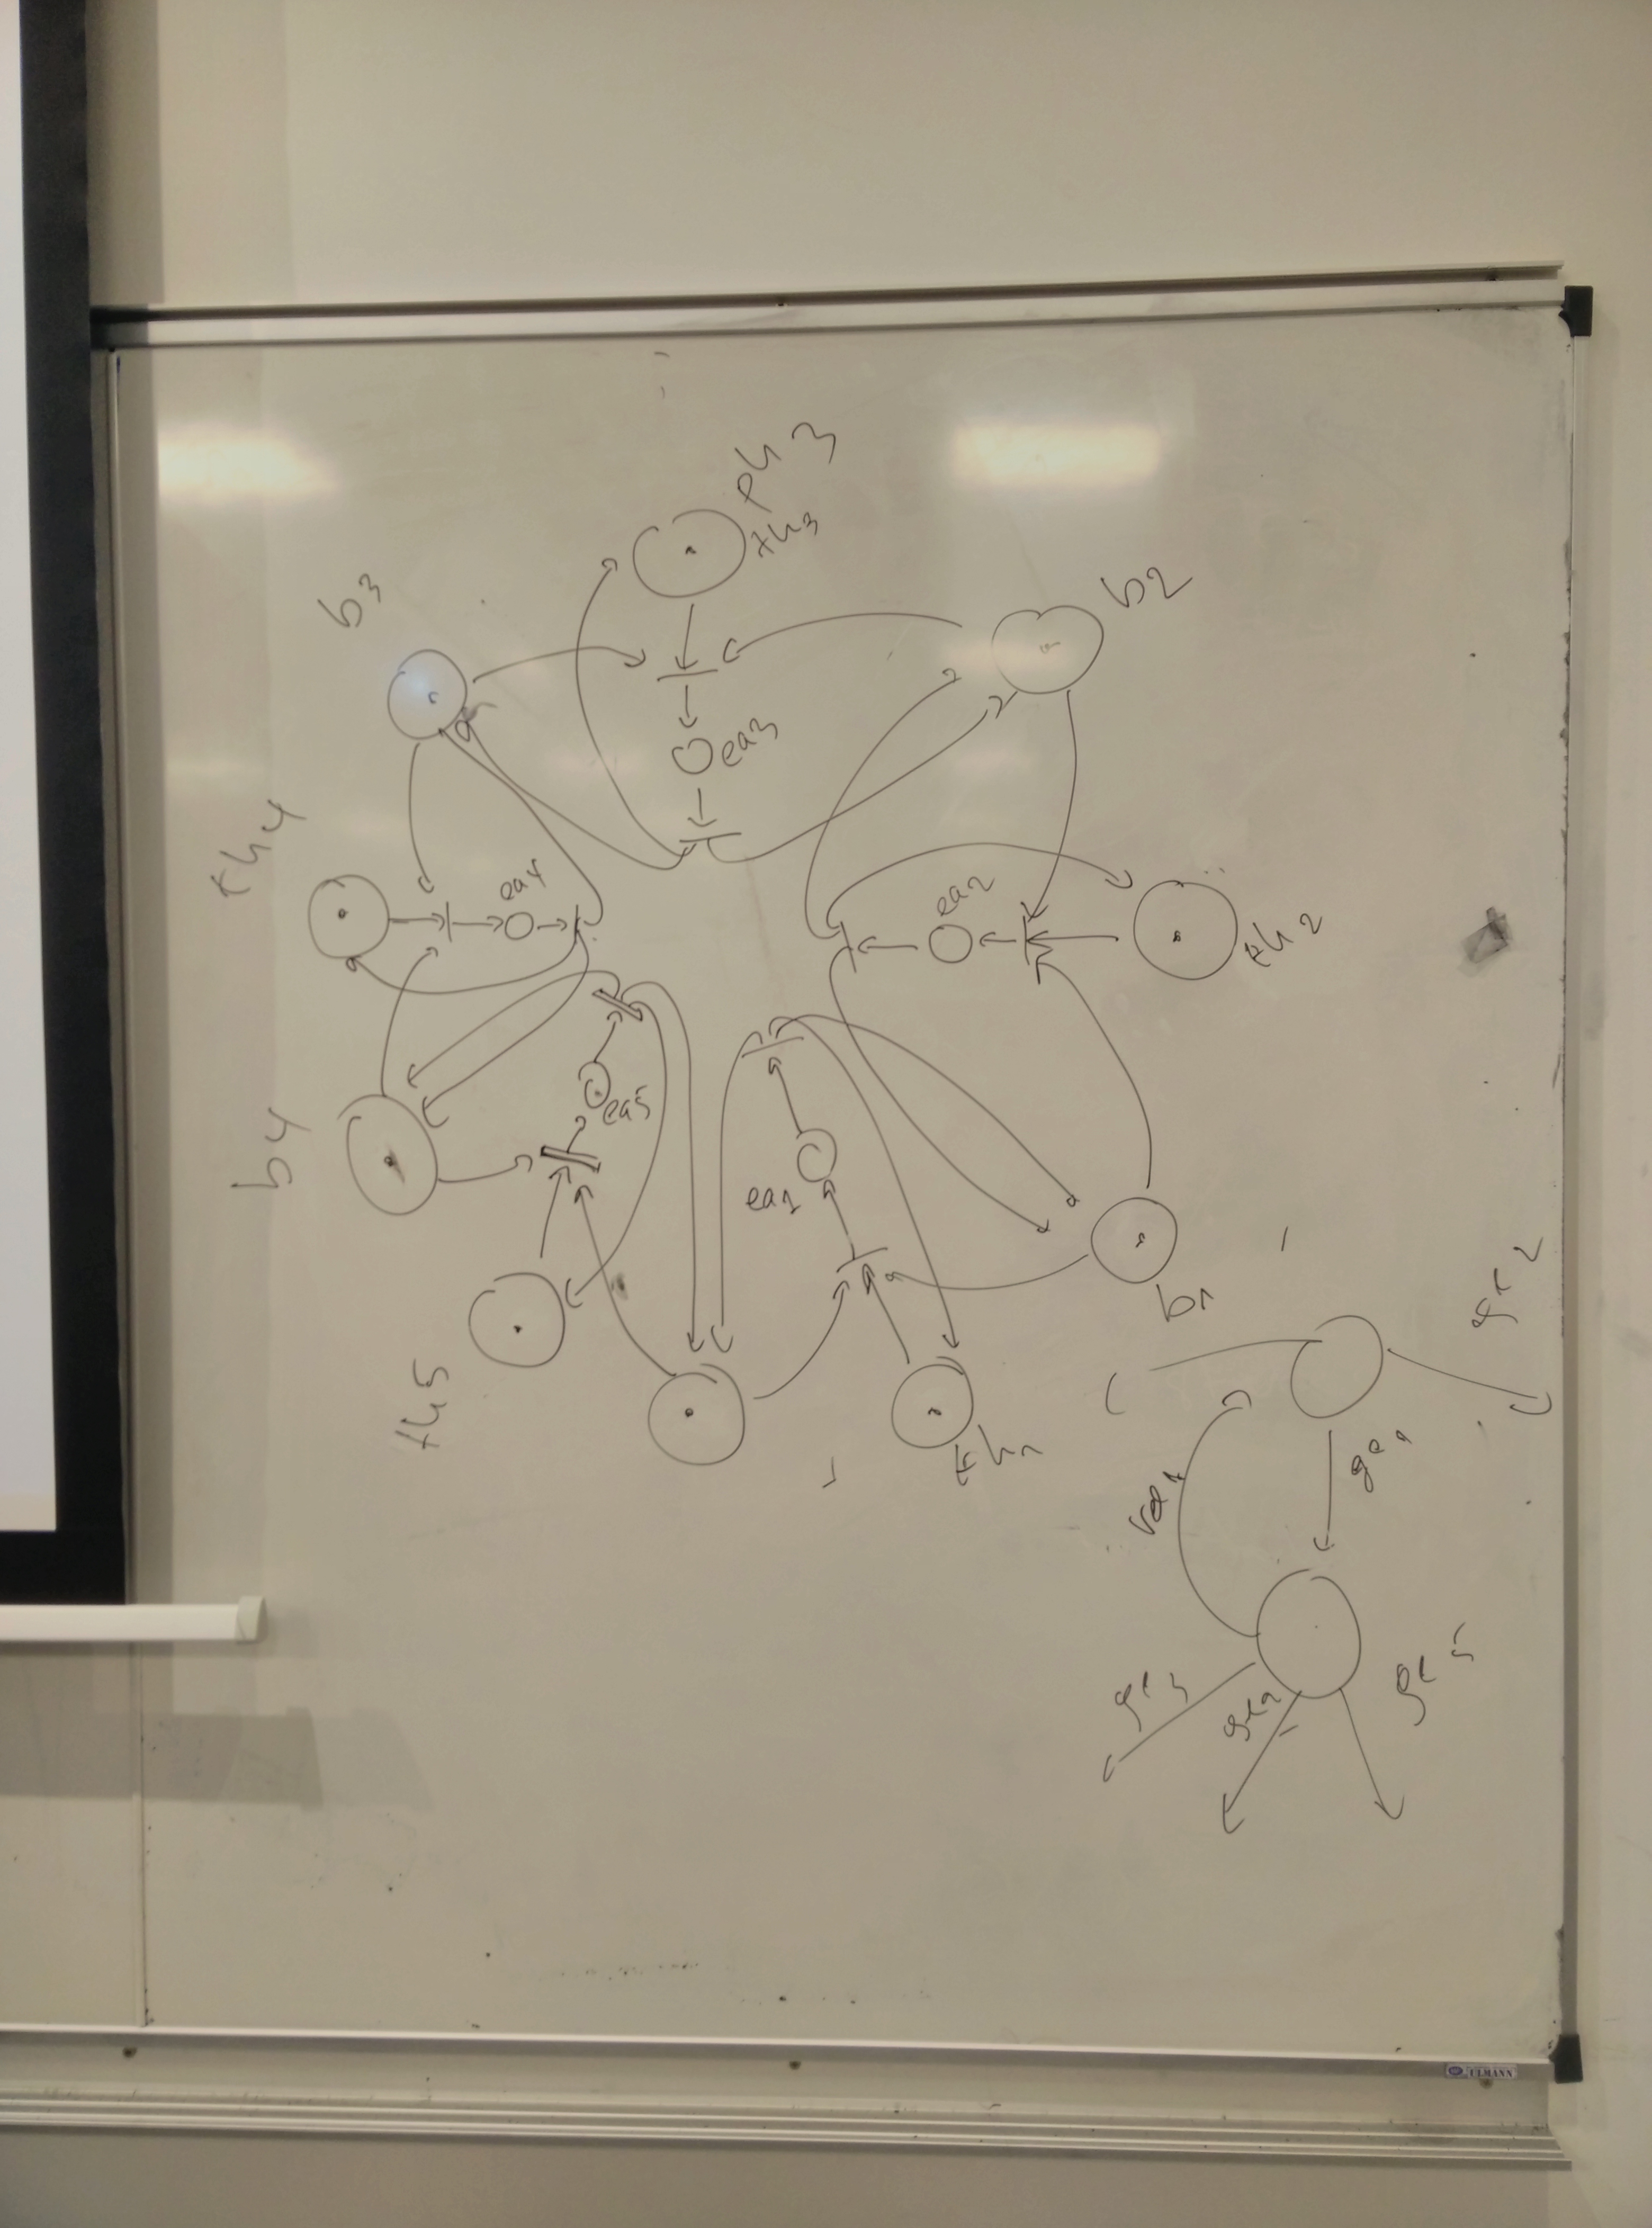 ph3
th3
b3
b2
ea3
th4
ea4
ea2
th2
ea5
b4
ea1
b1
th5
th1
ge2
ge1
re1
ge3
ge2
ge5
ULMANN